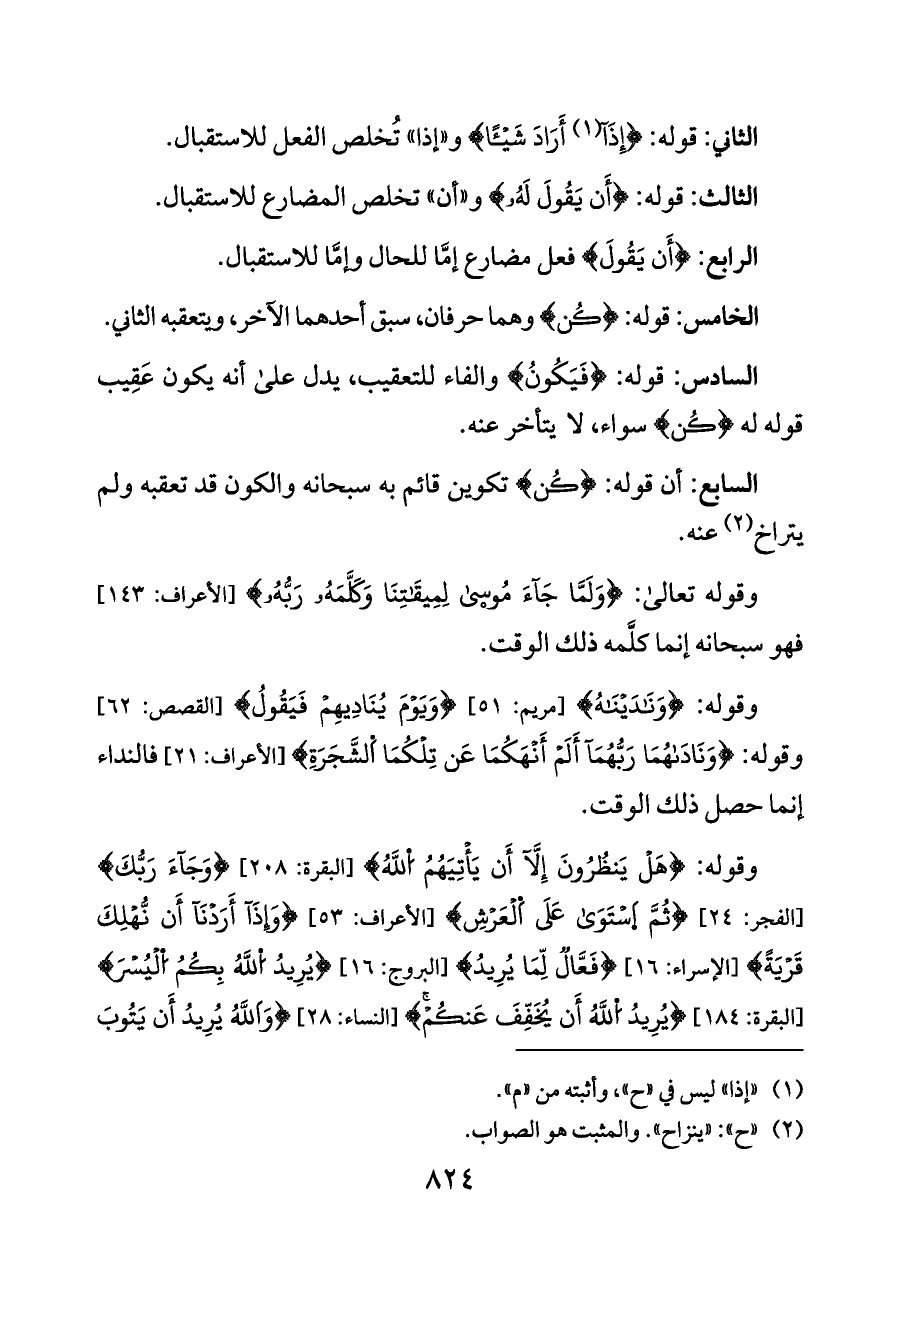 الثاني: قوله: ﴿إِذَآ(١) أَرَادَ شَيْـًٔا﴾ و«إذا» تُخلص الفعل للاستقبال.
الثالث: قوله: ﴿أَن يَقُولَ لَهُۥ﴾ و«أن» تخلص المضارع للاستقبال.
الرابع: ﴿أَن يَقُولَ﴾ فعل مضارع إمَّا للحال وإمَّا للاستقبال.
الخامس: قوله: ﴿كُن﴾ وهما حرفان، سبق أحدهما الآخر، ويتعقبه الثاني.
السادس: قوله: ﴿فَيَكُونُ﴾ والفاء للتعقيب، يدل علىٰ أنه يكون عَقِيب
قوله له ﴿كُن﴾ سواء، لا يتأخر عنه.
السابع: أن قوله: ﴿كُن﴾ تكوين قائم به سبحانه والكون قد تعقبه ولم
يتراخ(٢) عنه.
وقوله تعالىٰ: ﴿وَلَمَّا جَآءَ مُوسٜىٰ لِمِيقَٰتِنَا وَكَلَّمَهُۥ رَبُّهُۥ﴾ [الأعراف: ١٤٣]
فهو سبحانه إنما كلَّمه ذلك الوقت.
وقوله: ﴿وَنَٰدَيْنَٰهُ﴾ [مريم: ٥١] ﴿وَيَوْمَ يُنَادِيهِمْ فَيَقُولُ﴾ [القصص: ٦٢]
وقوله: ﴿وَنَادَىٰهُمَا رَبُّهُمَآ أَلَمْ أَنْهَكُمَا عَن تِلْكُمَا اَ۬لشَّجَرَةِ﴾ [الأعراف: ٢١] فالنداء
إنما حصل ذلك الوقت.
وقوله: ﴿هَلْ يَنظُرُونَ إِلَّآ أَن يَأْتِيَهُمُ اُ۬للَّهُ﴾ [البقرة: ٢٠٨] ﴿وَجَآءَ رَبُّكَ﴾
[الفجر: ٢٤] ﴿ثُمَّ اَ۪سْتَوَىٰ عَلَى اَ۬لْعَرْشِ﴾ [الأعراف: ٥٣] ﴿وَإِذَآ أَرَدْنَآ أَن نُّهْلِكَ
قَرْيَةً﴾ [الإسراء: ١٦] ﴿فَعَّالٌ لِّمَا يُرِيدُ﴾ [البروج: ١٦] ﴿يُرِيدُ اُ۬للَّهُ بِكُمُ اُ۬لْيُسْرَ﴾
[البقرة: ١٨٤] ﴿يُرِيدُ اُ۬للَّهُ أَن يُخَفِّفَ عَنكُمْۚ﴾ [النساء: ٢٨] ﴿وَاَ۬للَّهُ يُرِيدُ أَن يَتُوبَ
(١) «إذا» ليس في «ح»، وأثبته من «م».
(٢) «ح»: «ينزاح». والمثبت هو الصواب.
٨٢٤